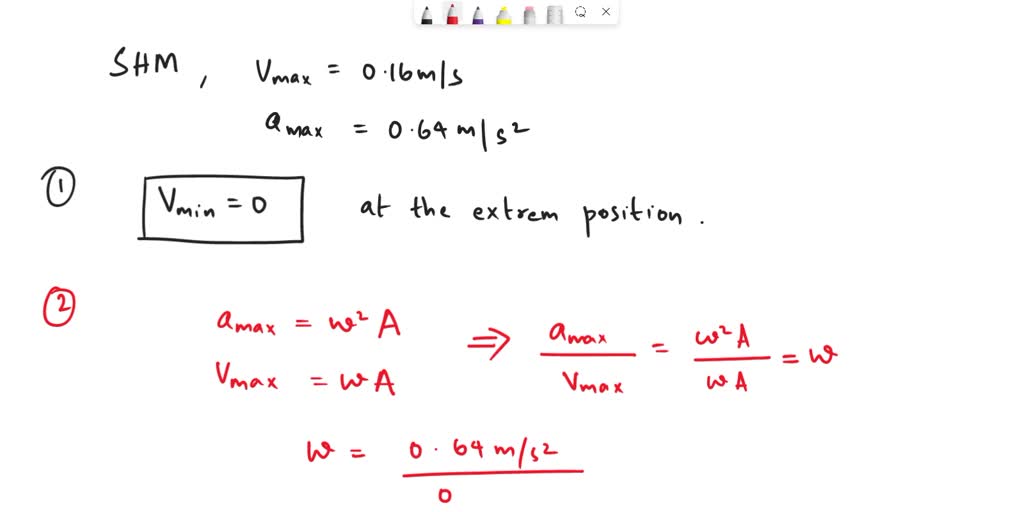 SHM, Vmax = 0.16 m/s
amax = 0.64 m/s²
① Vmin = 0 at the extrem position.
② amax = w²A ⇒ amax/Vmax = w²A/wA = w
Vmax = wA
w = 0.64 m/s²
0